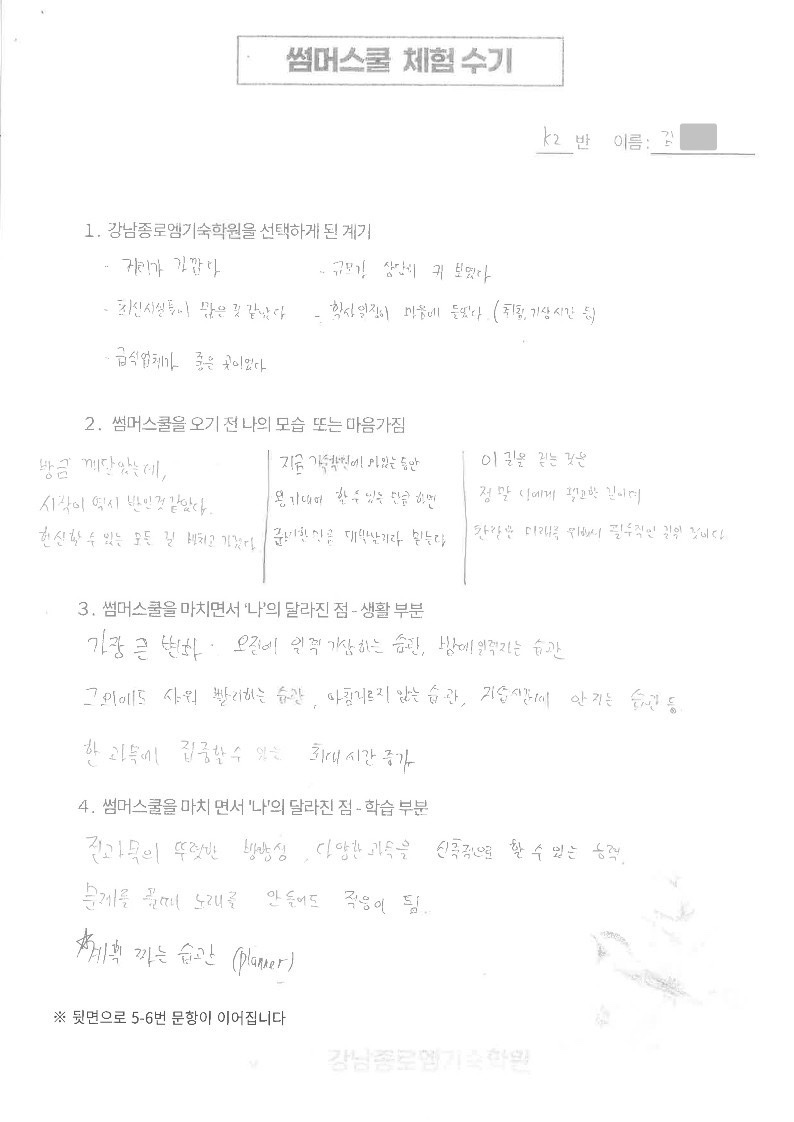 썸머스쿨 체험 수기
K2 반 이름: 김
1. 강남종로엠기숙학원을 선택하게 된 계기
- 거리가 가깝다
- 규모가 상당히 커 보였다
- 최신시설들이 많은 것 같았다
- 학사일정이 마음에 들었다. (취침, 기상시간 등)
- 급식업체가 좋은 곳이었다
2. 썸머스쿨을 오기 전 나의 모습 또는 마음가짐
방금 깨달았는데,
시작이 역시 반인것 같았다.
헌신할 수 있는 모든 걸 바치고 가겠다
지금 기숙학원에 와있는 동안
용기내어 할 수 있는 만큼 하면
준비한만큼 대학살리라 믿는다
이 길을 걷는 것은
정말 나에게 힘든 길이며
찬란한 미래를 위해서 필수적인 길일 것이다
3. 썸머스쿨을 마치면서 '나'의 달라진 점 - 생활 부분
가장 큰 변화 - 오전에 일찍 기상하는 습관, 밤에 일찍자는 습관
그외에도 샤워 빨리하는 습관, 아침거르지 않는 습관, 자습시간에 안자는 습관 등
한 과목에 집중할 수 있는 최대 시간 증가
4. 썸머스쿨을 마치 면서 '나'의 달라진 점 - 학습 부분
전과목의 뚜렷한 방향성, 다양한 과목을 신축적으로 할 수 있는 능력,
문제를 풀때 노래를 안 들어도 적응이 됨.
☆계획 짜는 습관 (planner)
※ 뒷면으로 5-6번 문항이 이어집니다
강남종로엠기숙학원